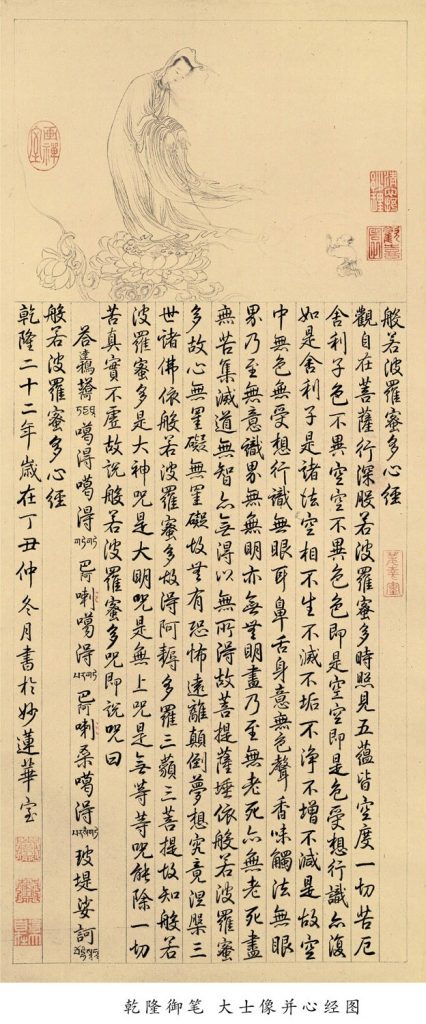 般若波羅蜜多心經
觀自在菩薩行深般若波羅蜜多時照見五蘊皆空度一切苦厄
舍利子色不異空空不異色色即是空空即是色受想行識亦復
如是舍利子是諸法空相不生不滅不垢不淨不增不減是故空
中無色無受想行識無眼耳鼻舌身意無色聲香味觸法無眼
界乃至無意識界無無明亦無無明盡乃至無老死亦無老死盡
無苦集滅道無智亦無得以無所得故菩提薩埵依般若波羅蜜
多故心無罣礙無罣礙故無有恐怖遠離顛倒夢想究竟涅槃三
世諸佛依般若波羅蜜多故得阿耨多羅三藐三菩提故知般若
波羅蜜多是大神咒是大明咒是無上咒是無等等咒能除一切
苦真實不虛故說般若波羅蜜多咒即說咒曰
噶得噶得 巴阿喇噶得 巴阿喇桑噶得 玻堤娑訶
般若波羅蜜多心經
乾隆二十二年歲在丁丑仲冬月書於妙蓮華室
乾隆御笔 大士像并心经图